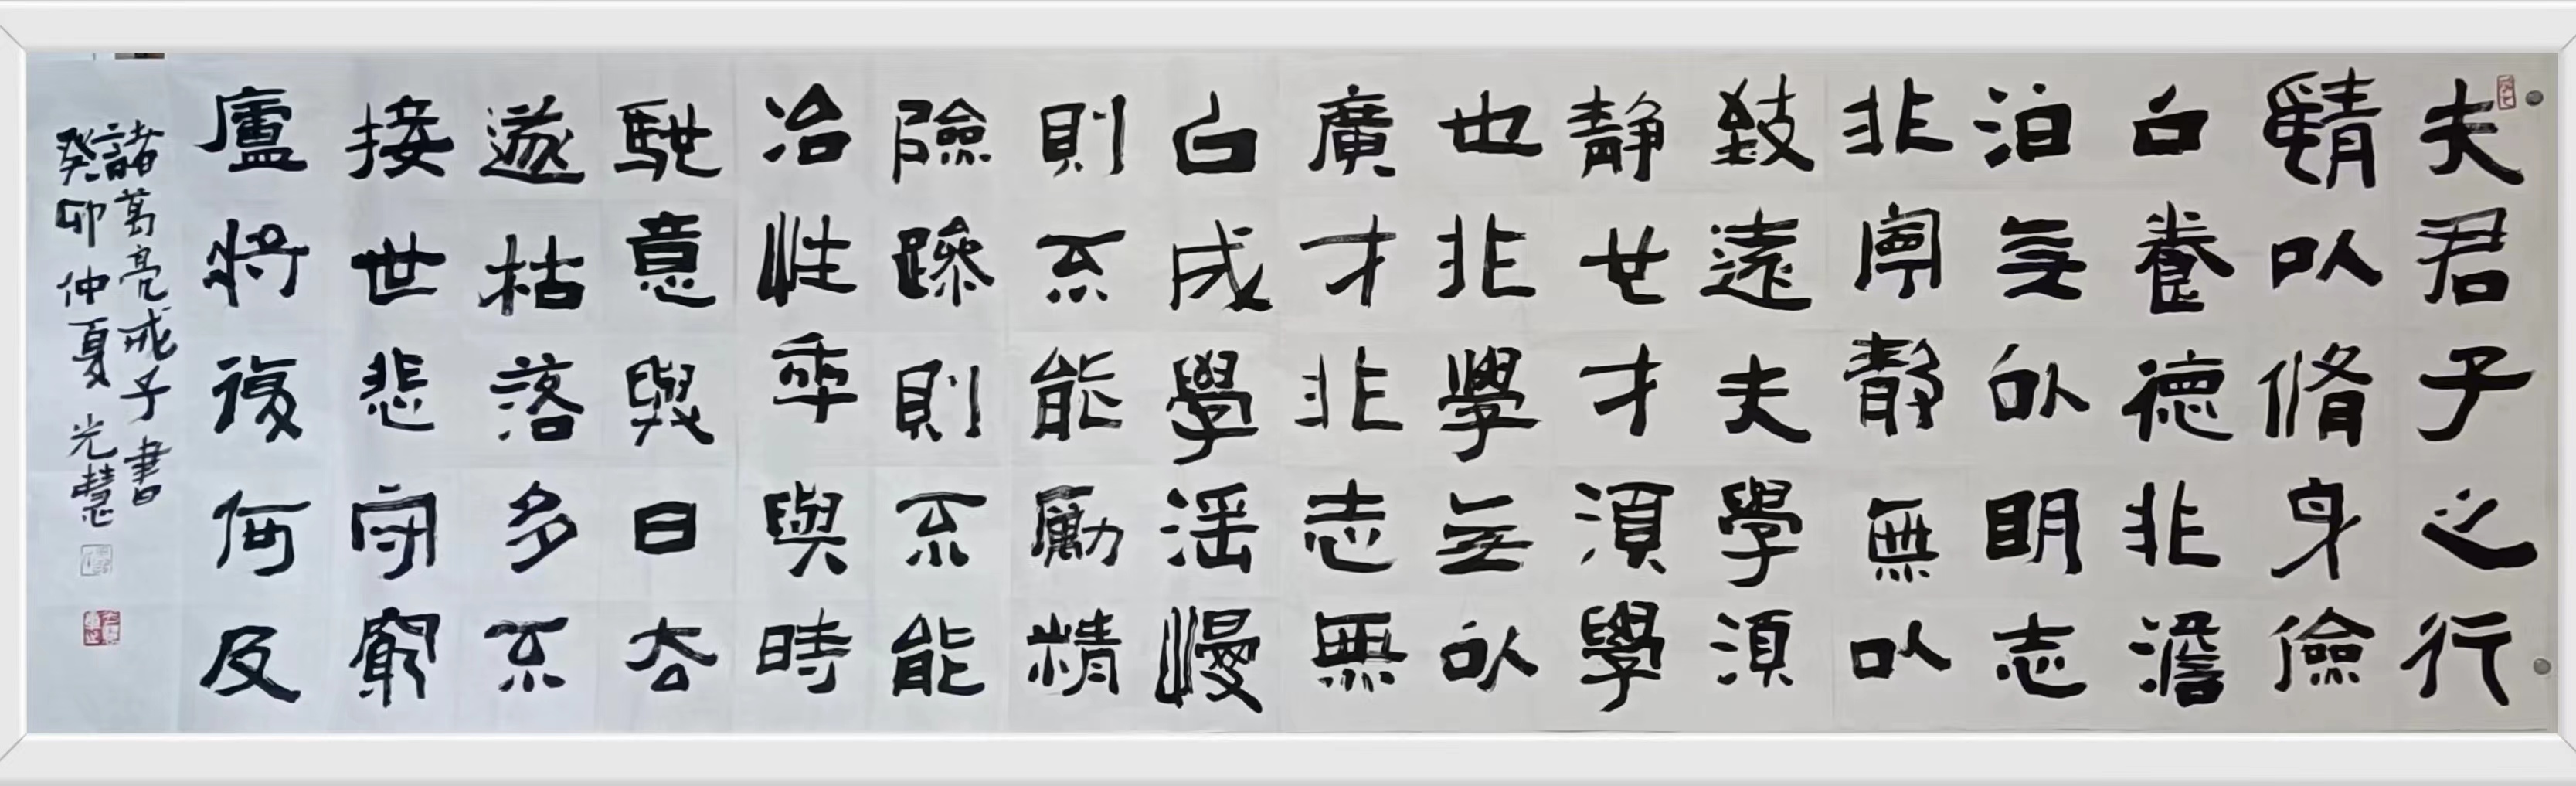 夫君子之行
靜以脩身儉
㠯養德非澹
泊無以明志
非寧靜無以
致遠夫學須
静也才須學
也非學無以
廣才非志無
㠯成學滛慢
則不能勵精
險躁則不能
冶性年與時
馳意與日去
遂枯落多不
接世悲守窮
廬將復何及
諸葛亮戒子書
癸卯仲夏 光慧